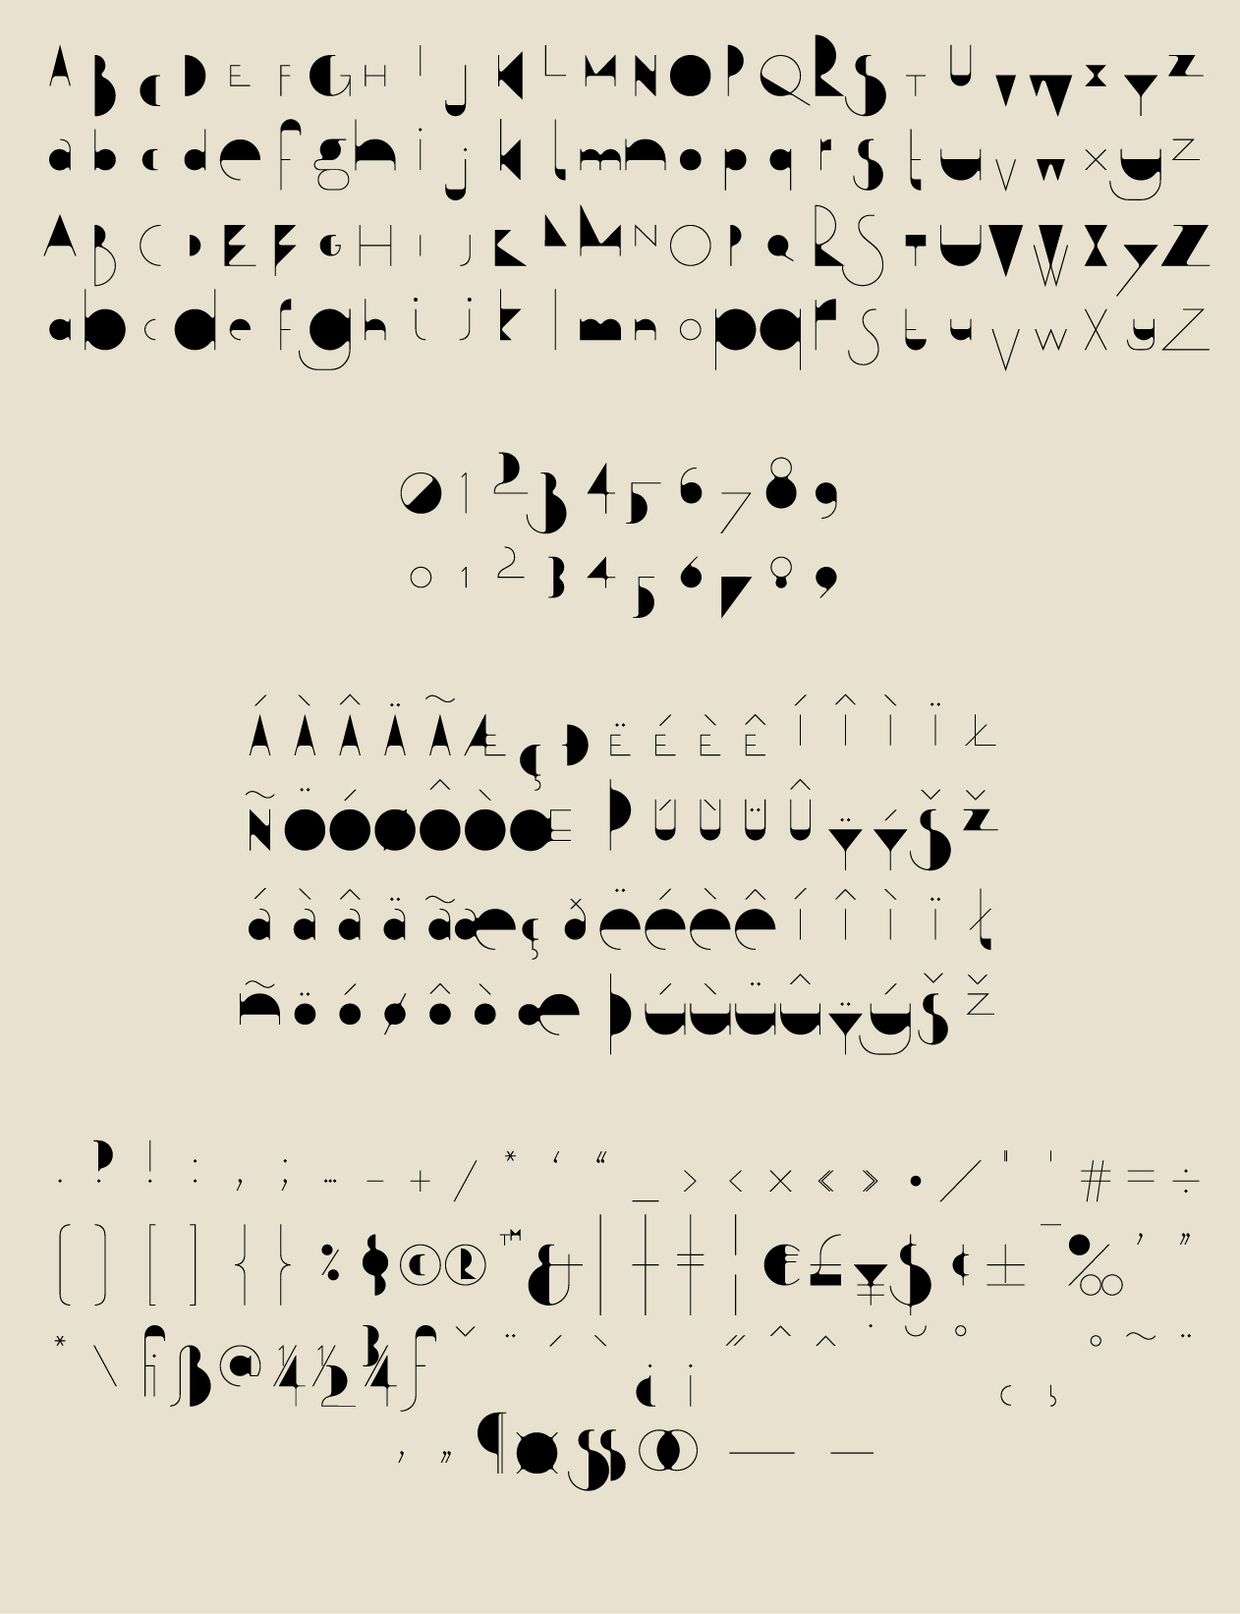 A B C D E F G H I J K L M N O P Q R S T U V W X Y Z
a b c d e f g h i j k l m n o p q r s t u v w x y z
A B C D E F G H I J K L M N O P Q R S T U V W X Y Z
a b c d e f g h i j k l m n o p q r s t u v w x y z
0 1 2 3 4 5 6 7 8 9
0 1 2 3 4 5 6 7 8 9
Á À Â Ä Ã Æ Ç Ð Ë É È Ê Í Î Ì Ï Ł
Ñ Ö Ó Ø Ô Ò Œ Þ Ú Ù Ü Û Ÿ Ý Š Ž
á à â ä ã æ ç ð ë é è ê í î ì ï ł
ñ ö ó ø ô ò œ þ ú ù ü û ÿ ý š ž
. ? ! : , ; … - + / * ‘ “ _ > < × « » • ⁄ " ' # = ÷
( ) [ ] { } % ¤ © ® ™ & | † ‡ ¦ € £ ¥ $ ¢ ± ¯ ‰ ’ ”
* \ fi ß @ ¼ ½ ¾ ƒ ˇ ¨ ´ ` ˝ ^ ˆ ˙ ˘ ° ˚ ˜ ¨
, „ ¶ ¤ — –